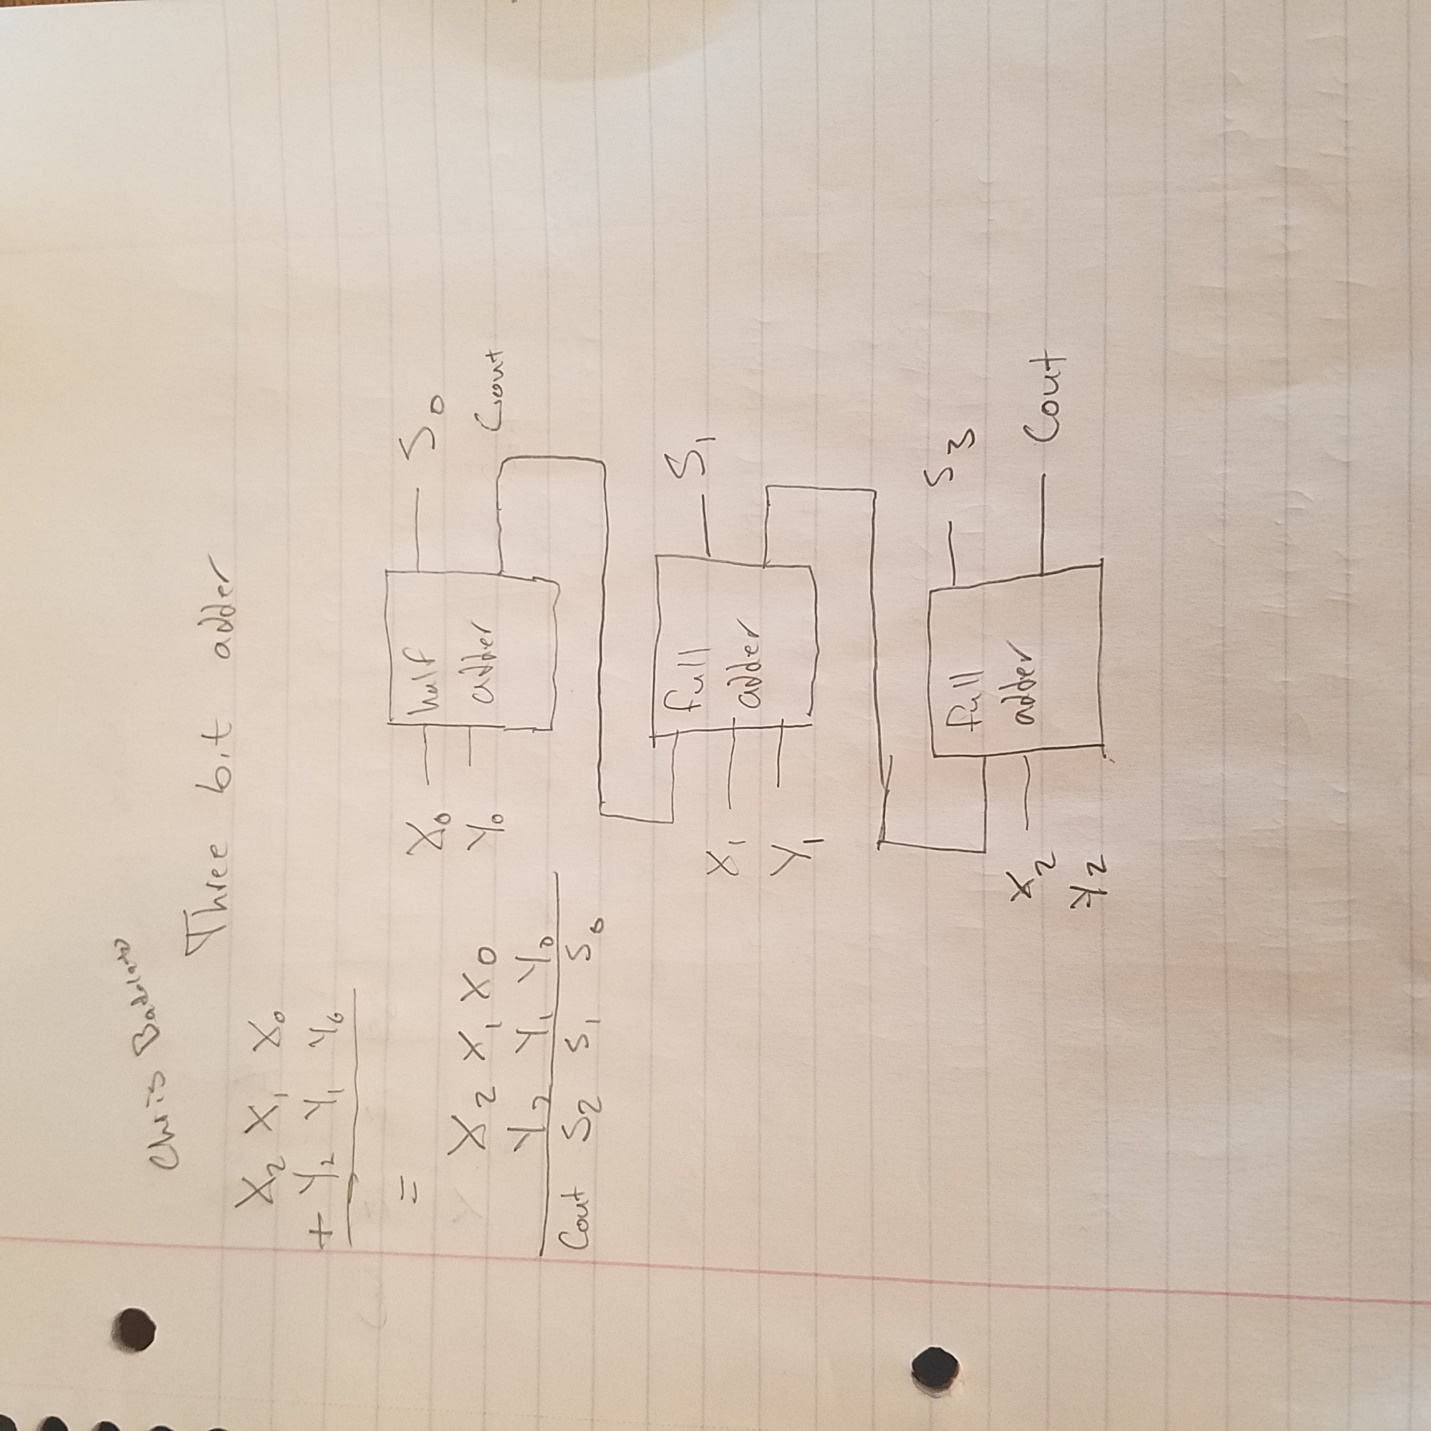 Chris Badolato
Three bit adder
X2 X1 X0
+ Y2 Y1 Y0
=
X2 X1 X0
Y2 Y1 Y0
Cout S2 S1 S0
X0
Y0
half
adder
S0
Cout
X1
Y1
full
adder
S1
X2
Y2
full
adder
S3
Cout